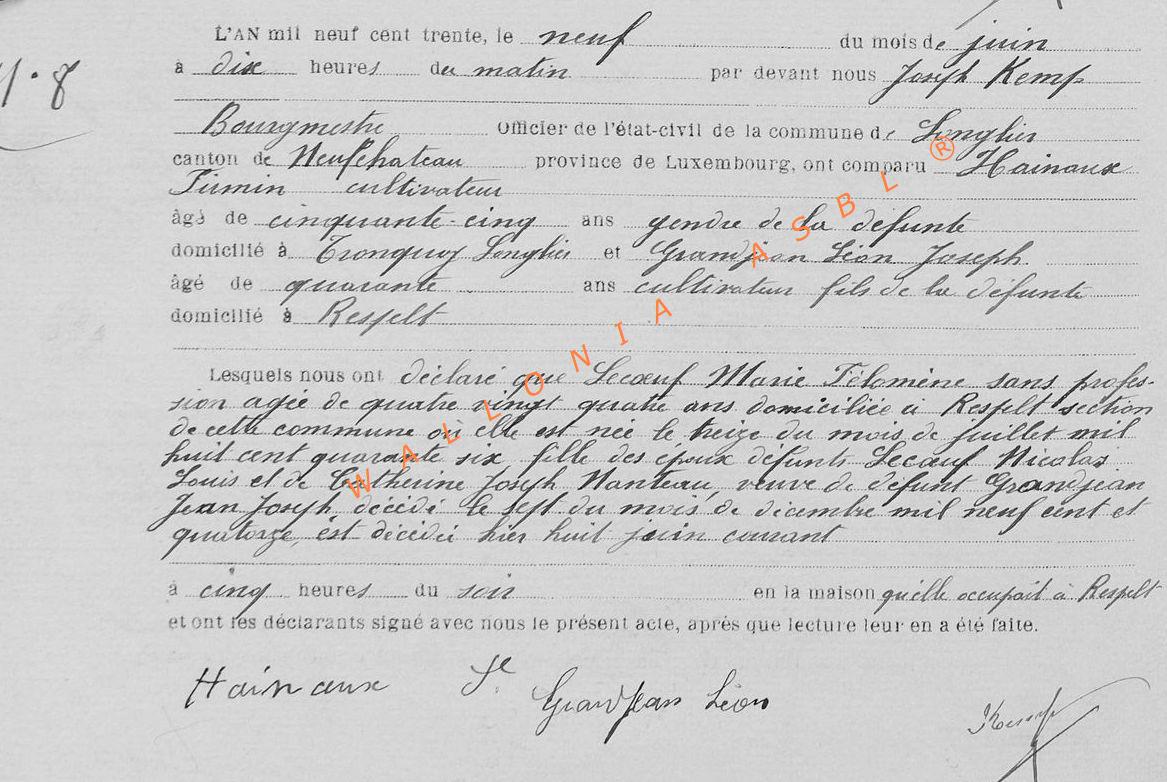 L'AN mil neuf cent trente, le neuf du mois de juin
N. 8
à dix heures du matin par devant nous Joseph Kemp
Bourgmestre Officier de l'état-civil de la commune de Longlier
canton de Neufchateau province de Luxembourg, ont comparu Hainaux
Firmin cultivateur
âgé de cinquante-cinq ans gendre de la défunte
domicilié à Tronquoy Longlier et Grandjean Léon Joseph
âgé de quarante ans cultivateur fils de la défunte
domicilié à Respelt
Lesquels nous ont déclaré que Lecoeuf Marie Filomène sans profes-
sion agée de quatre vingt quatre ans domiciliée à Respelt section
de cette commune où elle est née le treize du mois de juillet mil
huit cent quarante six fille des époux défunts Lecoeuf Nicolas
Louis et de Catherine Joseph Nanteau, veuve de défunt Grandjean
Jean Joseph décédé le sept du mois de décembre mil neuf cent et
quatorze, est décédée hier huit juin courant
à cinq heures du soir en la maison qu'elle occupait à Respelt
et ont les déclarants signé avec nous le présent acte, après que lecture leur en a été faite.
Hainaux F. Grandjean Léon
Kemp
WALLONIA ASBL ®